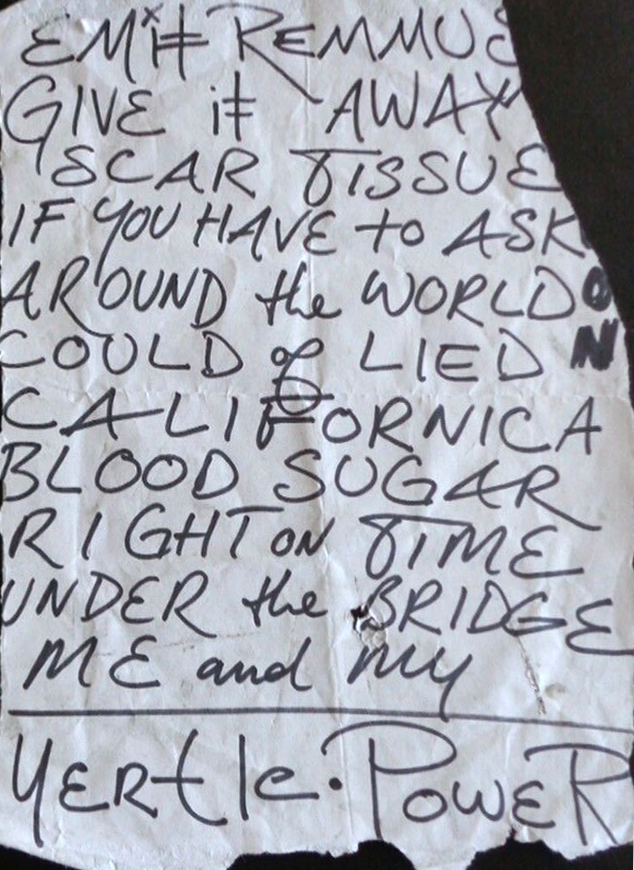 EMit REMMUS
GIVE it AWAY
SCAR TISSUE
IF YOU HAVE to ASK
AROUND the WORLD
ON
COULD of LIED
CALIFORNICA
BLOOD SUGAR
RIGHT ON TIME
UNDER the BRIDGE
ME and MY
YERtle · POWER